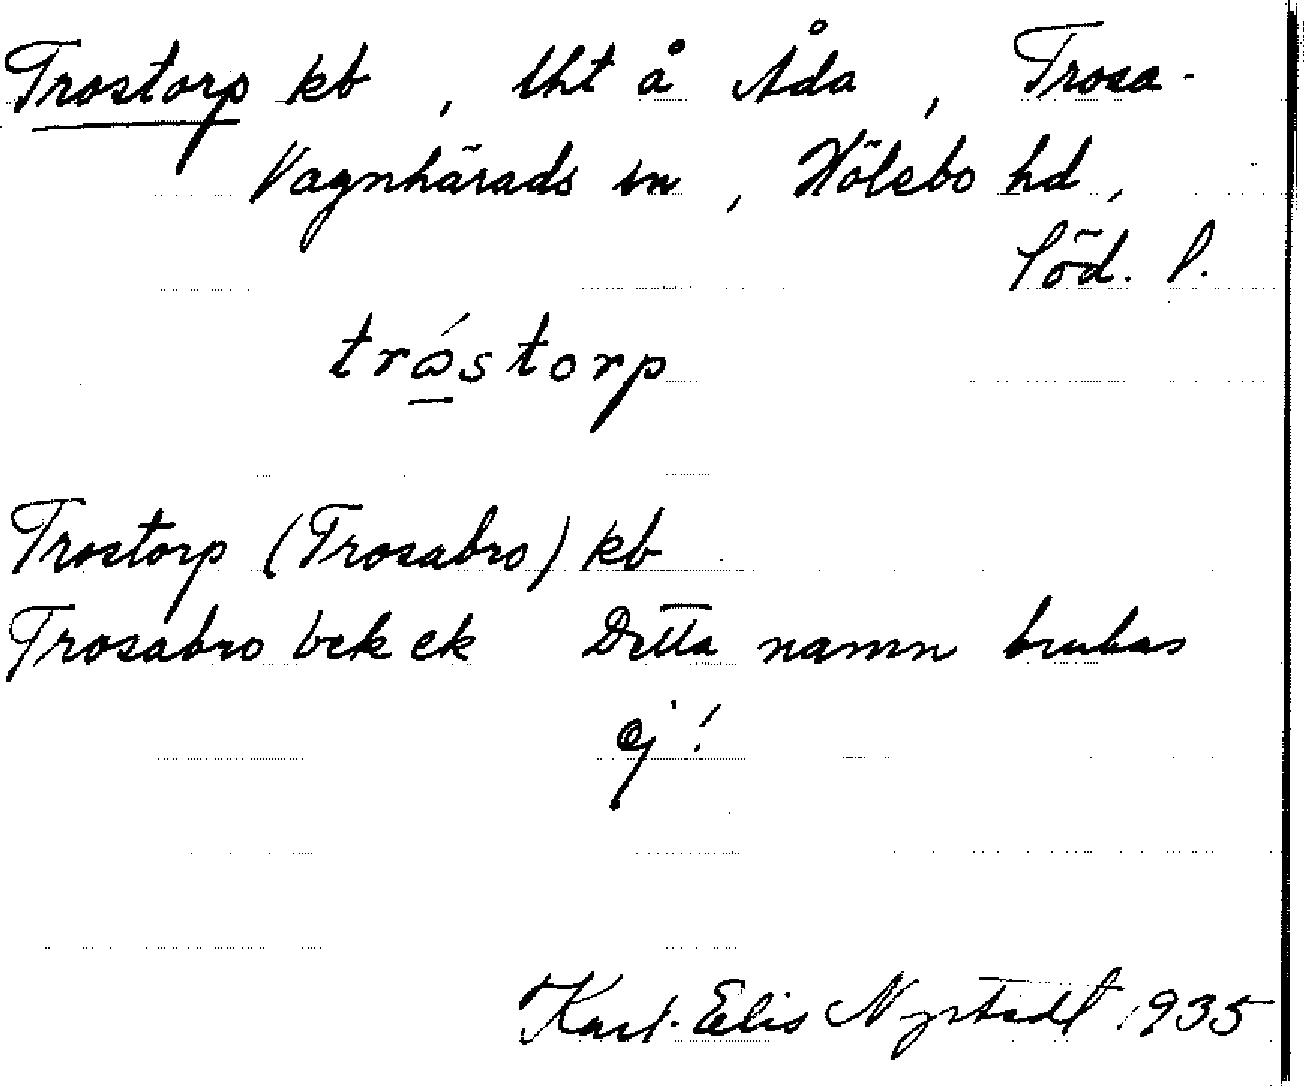 Trostorp kb, lht å Åda, Trosa-
Vagnhärads sn, Hölebo hd,
Söd. l.
tróstorp
Trostorp (Trosabro) kb
Trosabro bek ek Detta namn brukas
ej!
Karl-Elis Nystedt 1935